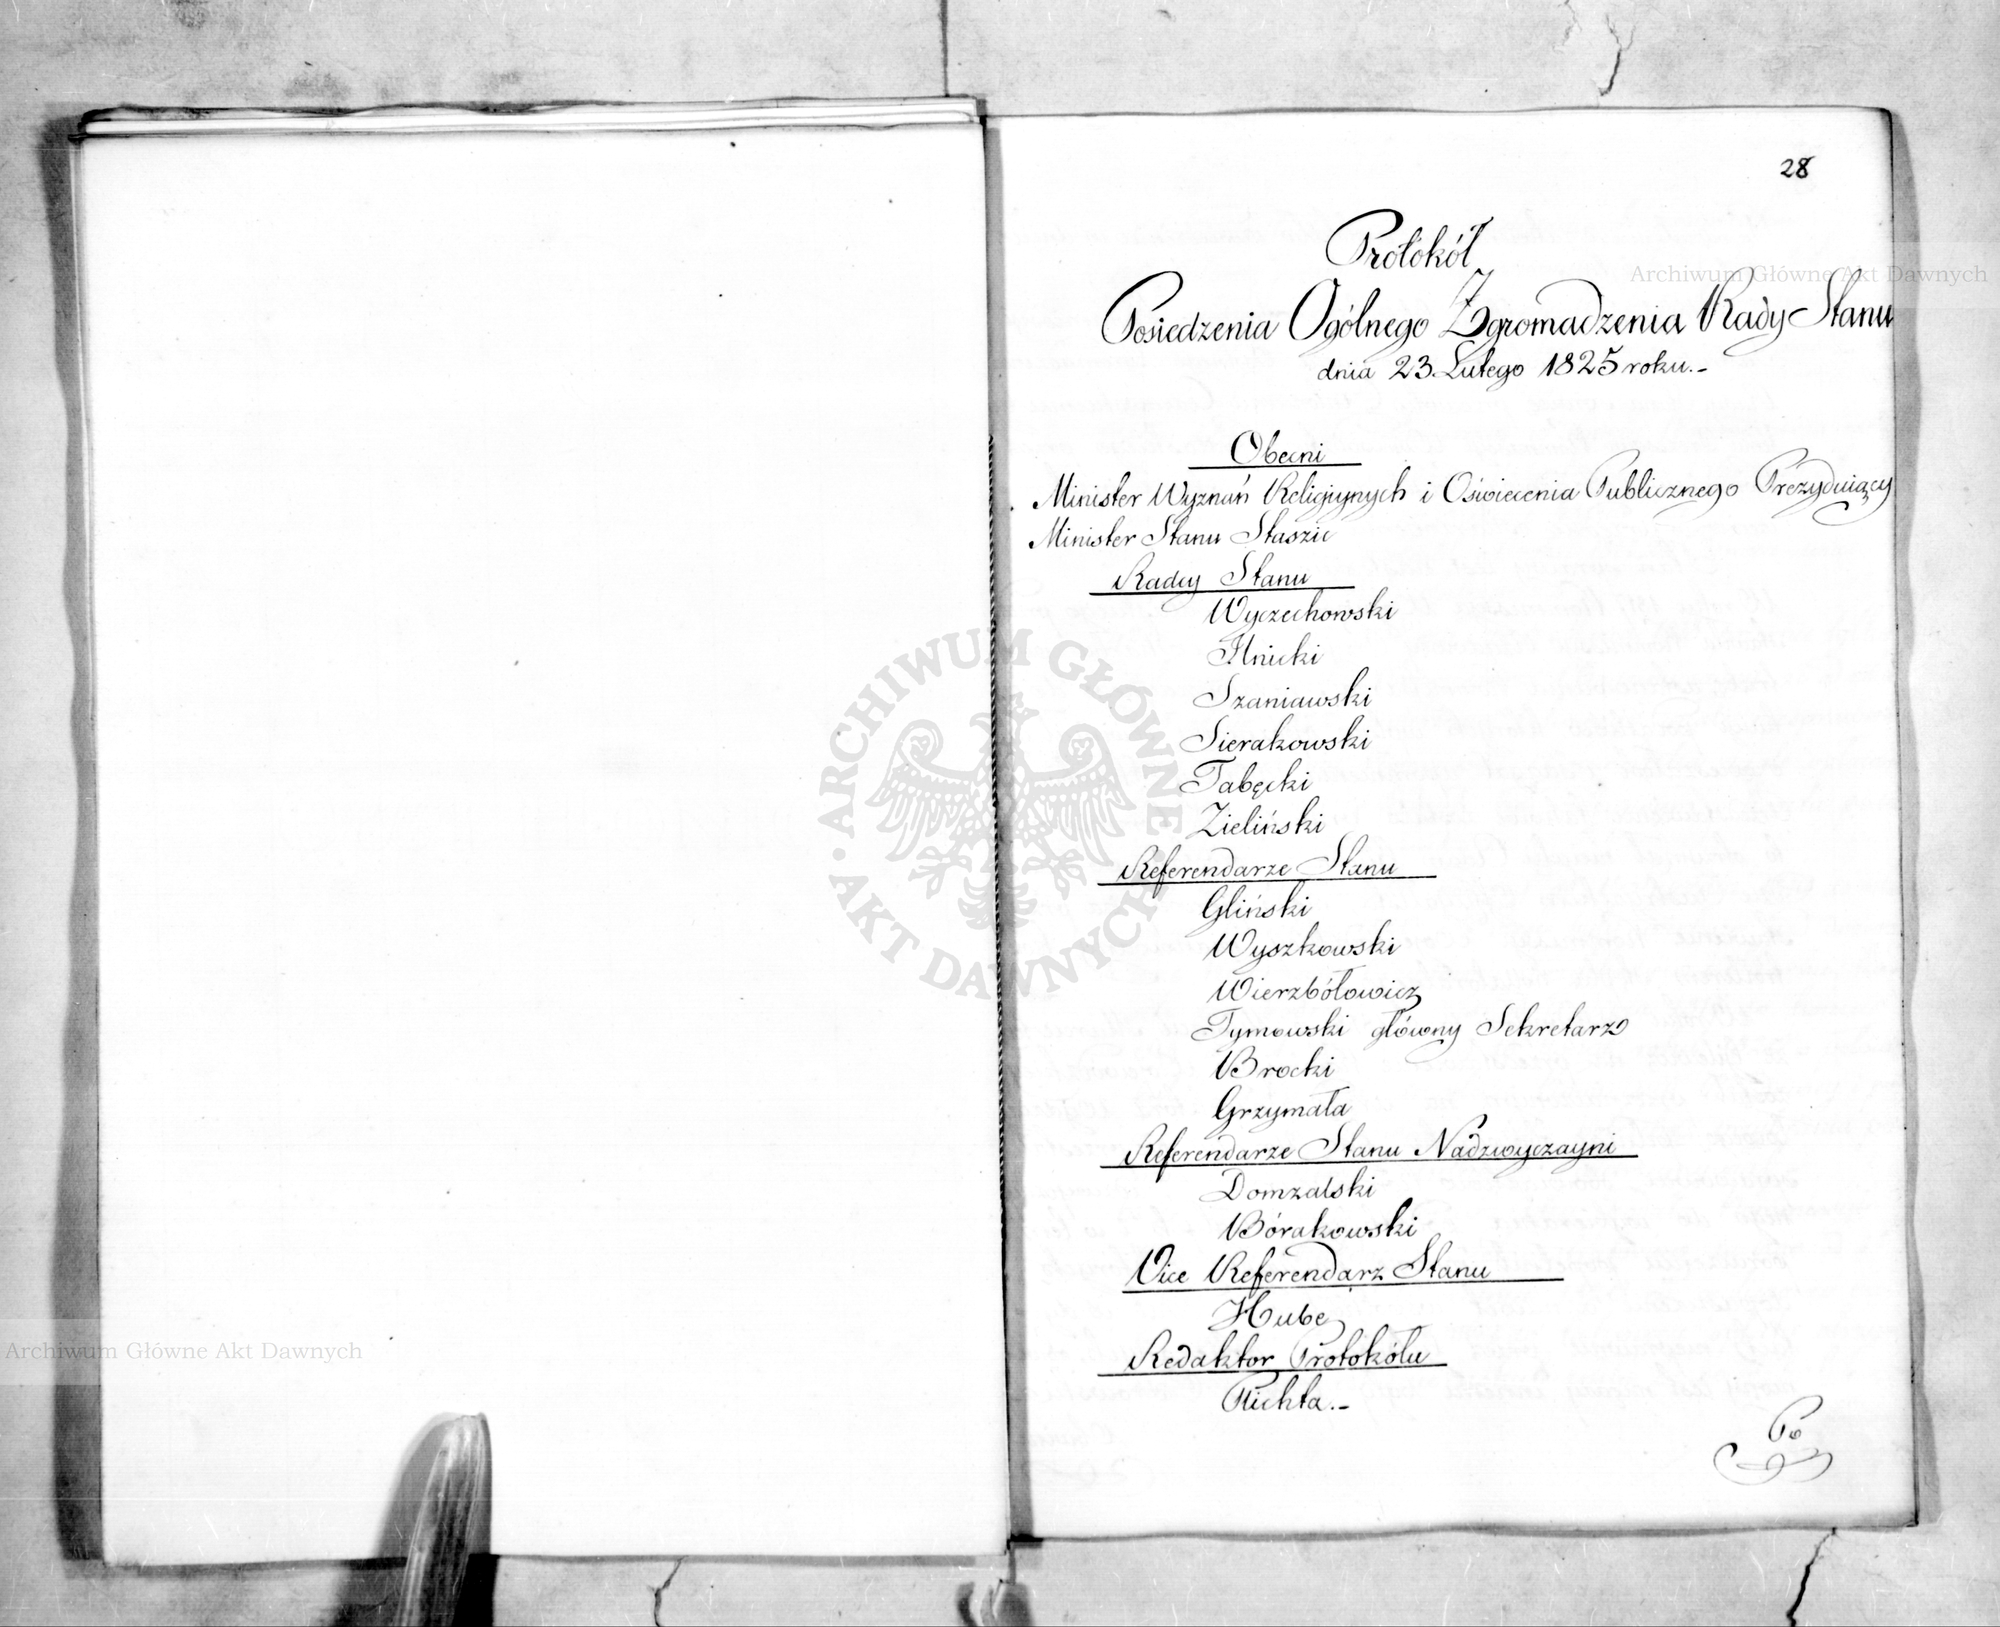 28
Protokół
Posiedzenia Ogólnego Zgromadzenia Rady Stanu
dnia 23. Lutego 1825 roku.-
Obecni
Minister Wyznań Religijnych i Oświecenia Publicznego Prezyduiący
Minister Stanu Staszic
Radcy Stanu
Wyczechowski
Ilnicki
Szaniawski
Sierakowski
Tabęcki
Zieliński
Referendarze Stanu
Gliński
Wyszkowski
Wierzbółowicz
Tymowski główny Sekretarz
Brocki
Grzymała
Referendarze Stanu Nadzwyczayni
Domzalski
Bórakowski
Vice Referendarz Stanu
Hube
Redaktor Protokółu
Plichta.-
Po
Archiwum Główne Akt Dawnych
ARCHIWUM GŁÓWNE AKT DAWNYCH
Archiwum Główne Akt Dawnych